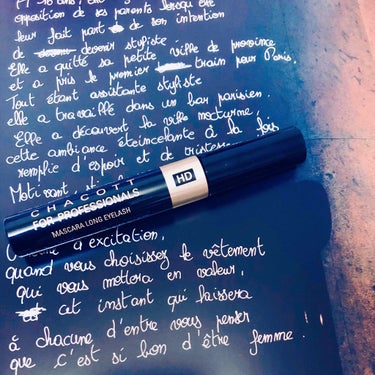 opposition de ses parents lorsqu'elle
leur fait part de son intention
de devenir styliste.
Elle a quitté sa petite ville de province
et a pris le premier train pour Paris.
Tout étant assistante styliste
elle a travaillé dans un bar parisien.
Elle a découvert la ville nocturne,
cette ambiance étincelante à la fois
remplie d'espoir et de tristesse
CHACOTT
FOR PROFESSIONALS
MASCARA LONG EYELASH
HD
à excitation,
quand vous choisissez le vêtement
qui vous mettera en valeur,
cet instant qui laissera
à chacune d'entre vous penser
que c'est si bon d'être femme !